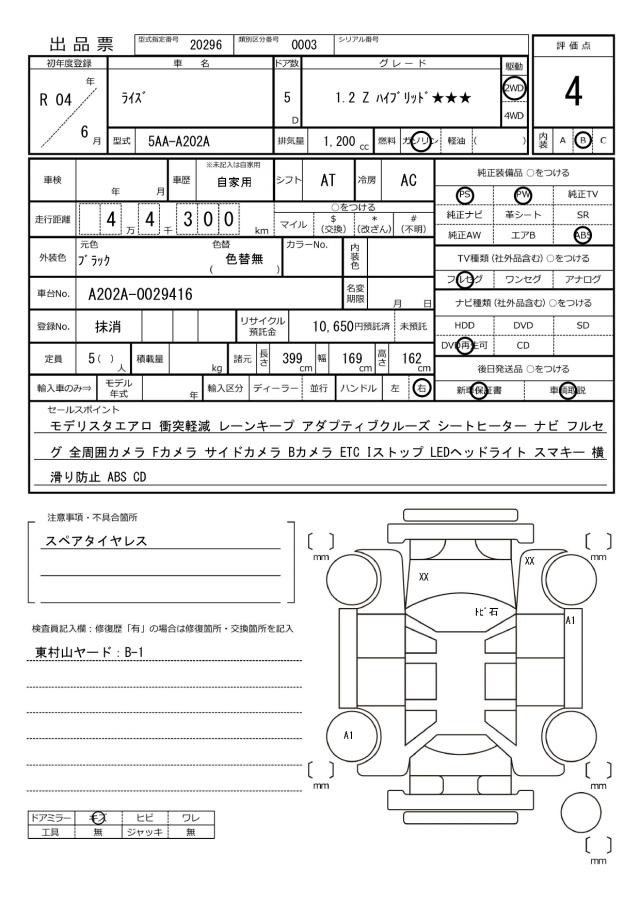 出品票 型式指定番号 20296 類別区分番号 0003 シリアル番号
評価点
4
内装 A B C
初年度登録 車 名 ドア数 グレード 駆動
R 04 年 6 月 ライズ 5 D 1.2 Z ハイブリッド★★★ 2WD 4WD
型式 5AA-A202A 排気量 1,200 cc 燃料 ガソリン 軽油 ( )
車検 年 月 車歴 ※未記入は自家用 自家用 シフト AT 冷房 AC
走行距離 4 万 4 千 3 0 0 km ○をつける
マイル $ (交換) * (改ざん) # (不明)
外装色 元色 ブラック 色替 ( 色替無 ) カラーNo. 内装色
車台No. A202A-0029416 名変期限 月 日
登録No. 抹消 リサイクル預託金 10,650円預託済 未預託
定員 5( ) 人 積載量 kg 諸元 長さ 399 cm 幅 169 cm 高さ 162 cm
輸入車のみ⇒ モデル年式 年 輸入区分 ディーラー 並行 ハンドル 左 右
純正装備品 ○をつける
PS PW 純正TV
純正ナビ 革シート SR
純正AW エアB ABS
TV種類 (社外品含む) ○をつける
フルセグ ワンセグ アナログ
ナビ種類 (社外品含む) ○をつける
HDD DVD SD
DVD再生可 CD
後日発送品 ○をつける
新車保証書 車輌取説
セールスポイント
モデリスタエアロ 衝突軽減 レーンキープ アダプティブクルーズ シートヒーター ナビ フルセ
グ 全周囲カメラ Fカメラ サイドカメラ Bカメラ ETC Iストップ LEDヘッドライト スマキー 横
滑り防止 ABS CD
注意事項・不具合箇所
スペアタイヤレス
検査員記入欄:修復歴「有」の場合は修復箇所・交換箇所を記入
東村山ヤード:B-1
ドアミラー キズ ヒビ ワレ
工具 無 ジャッキ 無
〔 〕 mm
〔 〕 mm
XX
XX
トビ石
A1
A1
〔 〕 mm
〔 〕 mm
〔 〕 mm